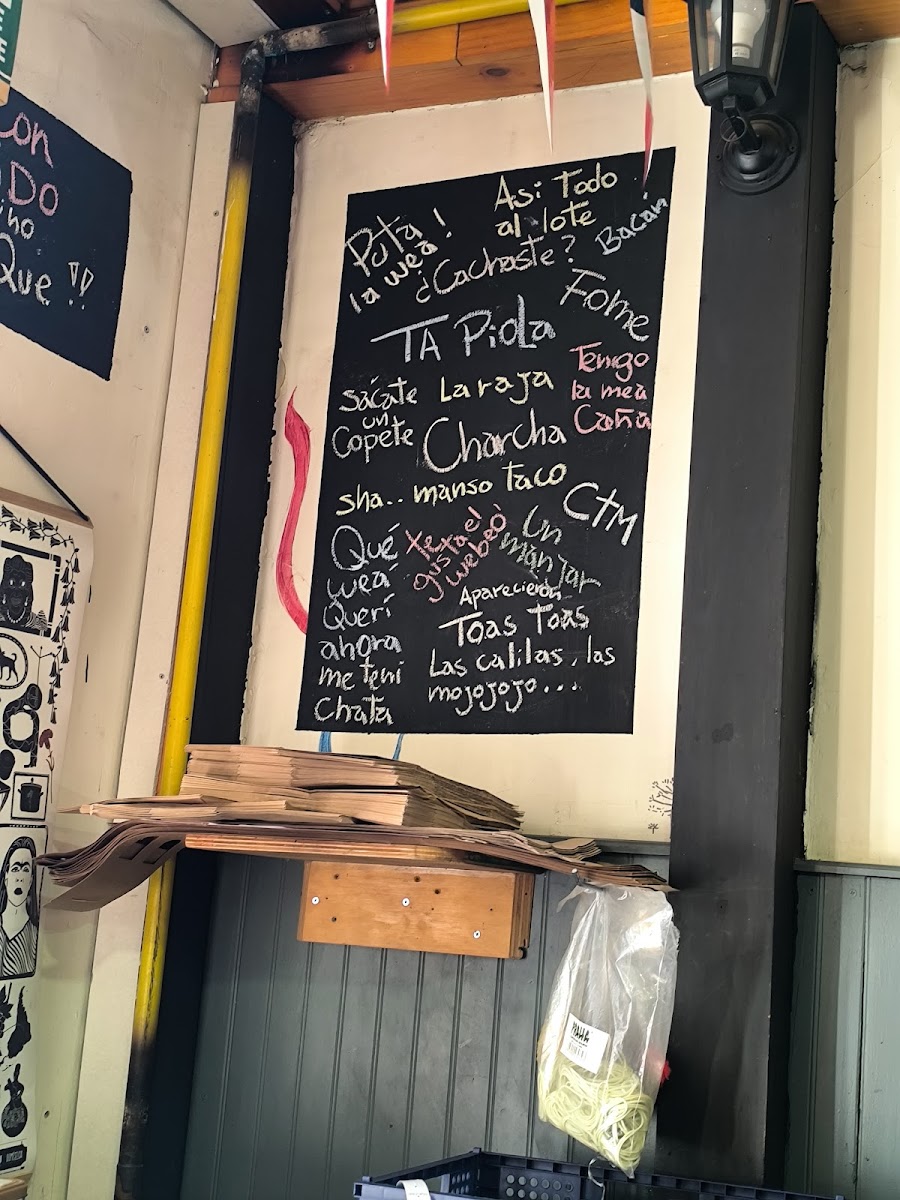 con
Do
ino
Que !!
Puta
la wea !
Asi Todo
al lote
Bacán
¿Cachaste?
Fome
TA Piola
Tengo
la mea
Caña
sácate
un
Copete
La raja
Charcha
sha.. manso taco
CTM
Qué
weá
Querí
ahora
me teni
Chata
te
gusta el
webeo
Un
manjar
Aparecieron
Toas Toas
Las calilas, las
mojojojo...